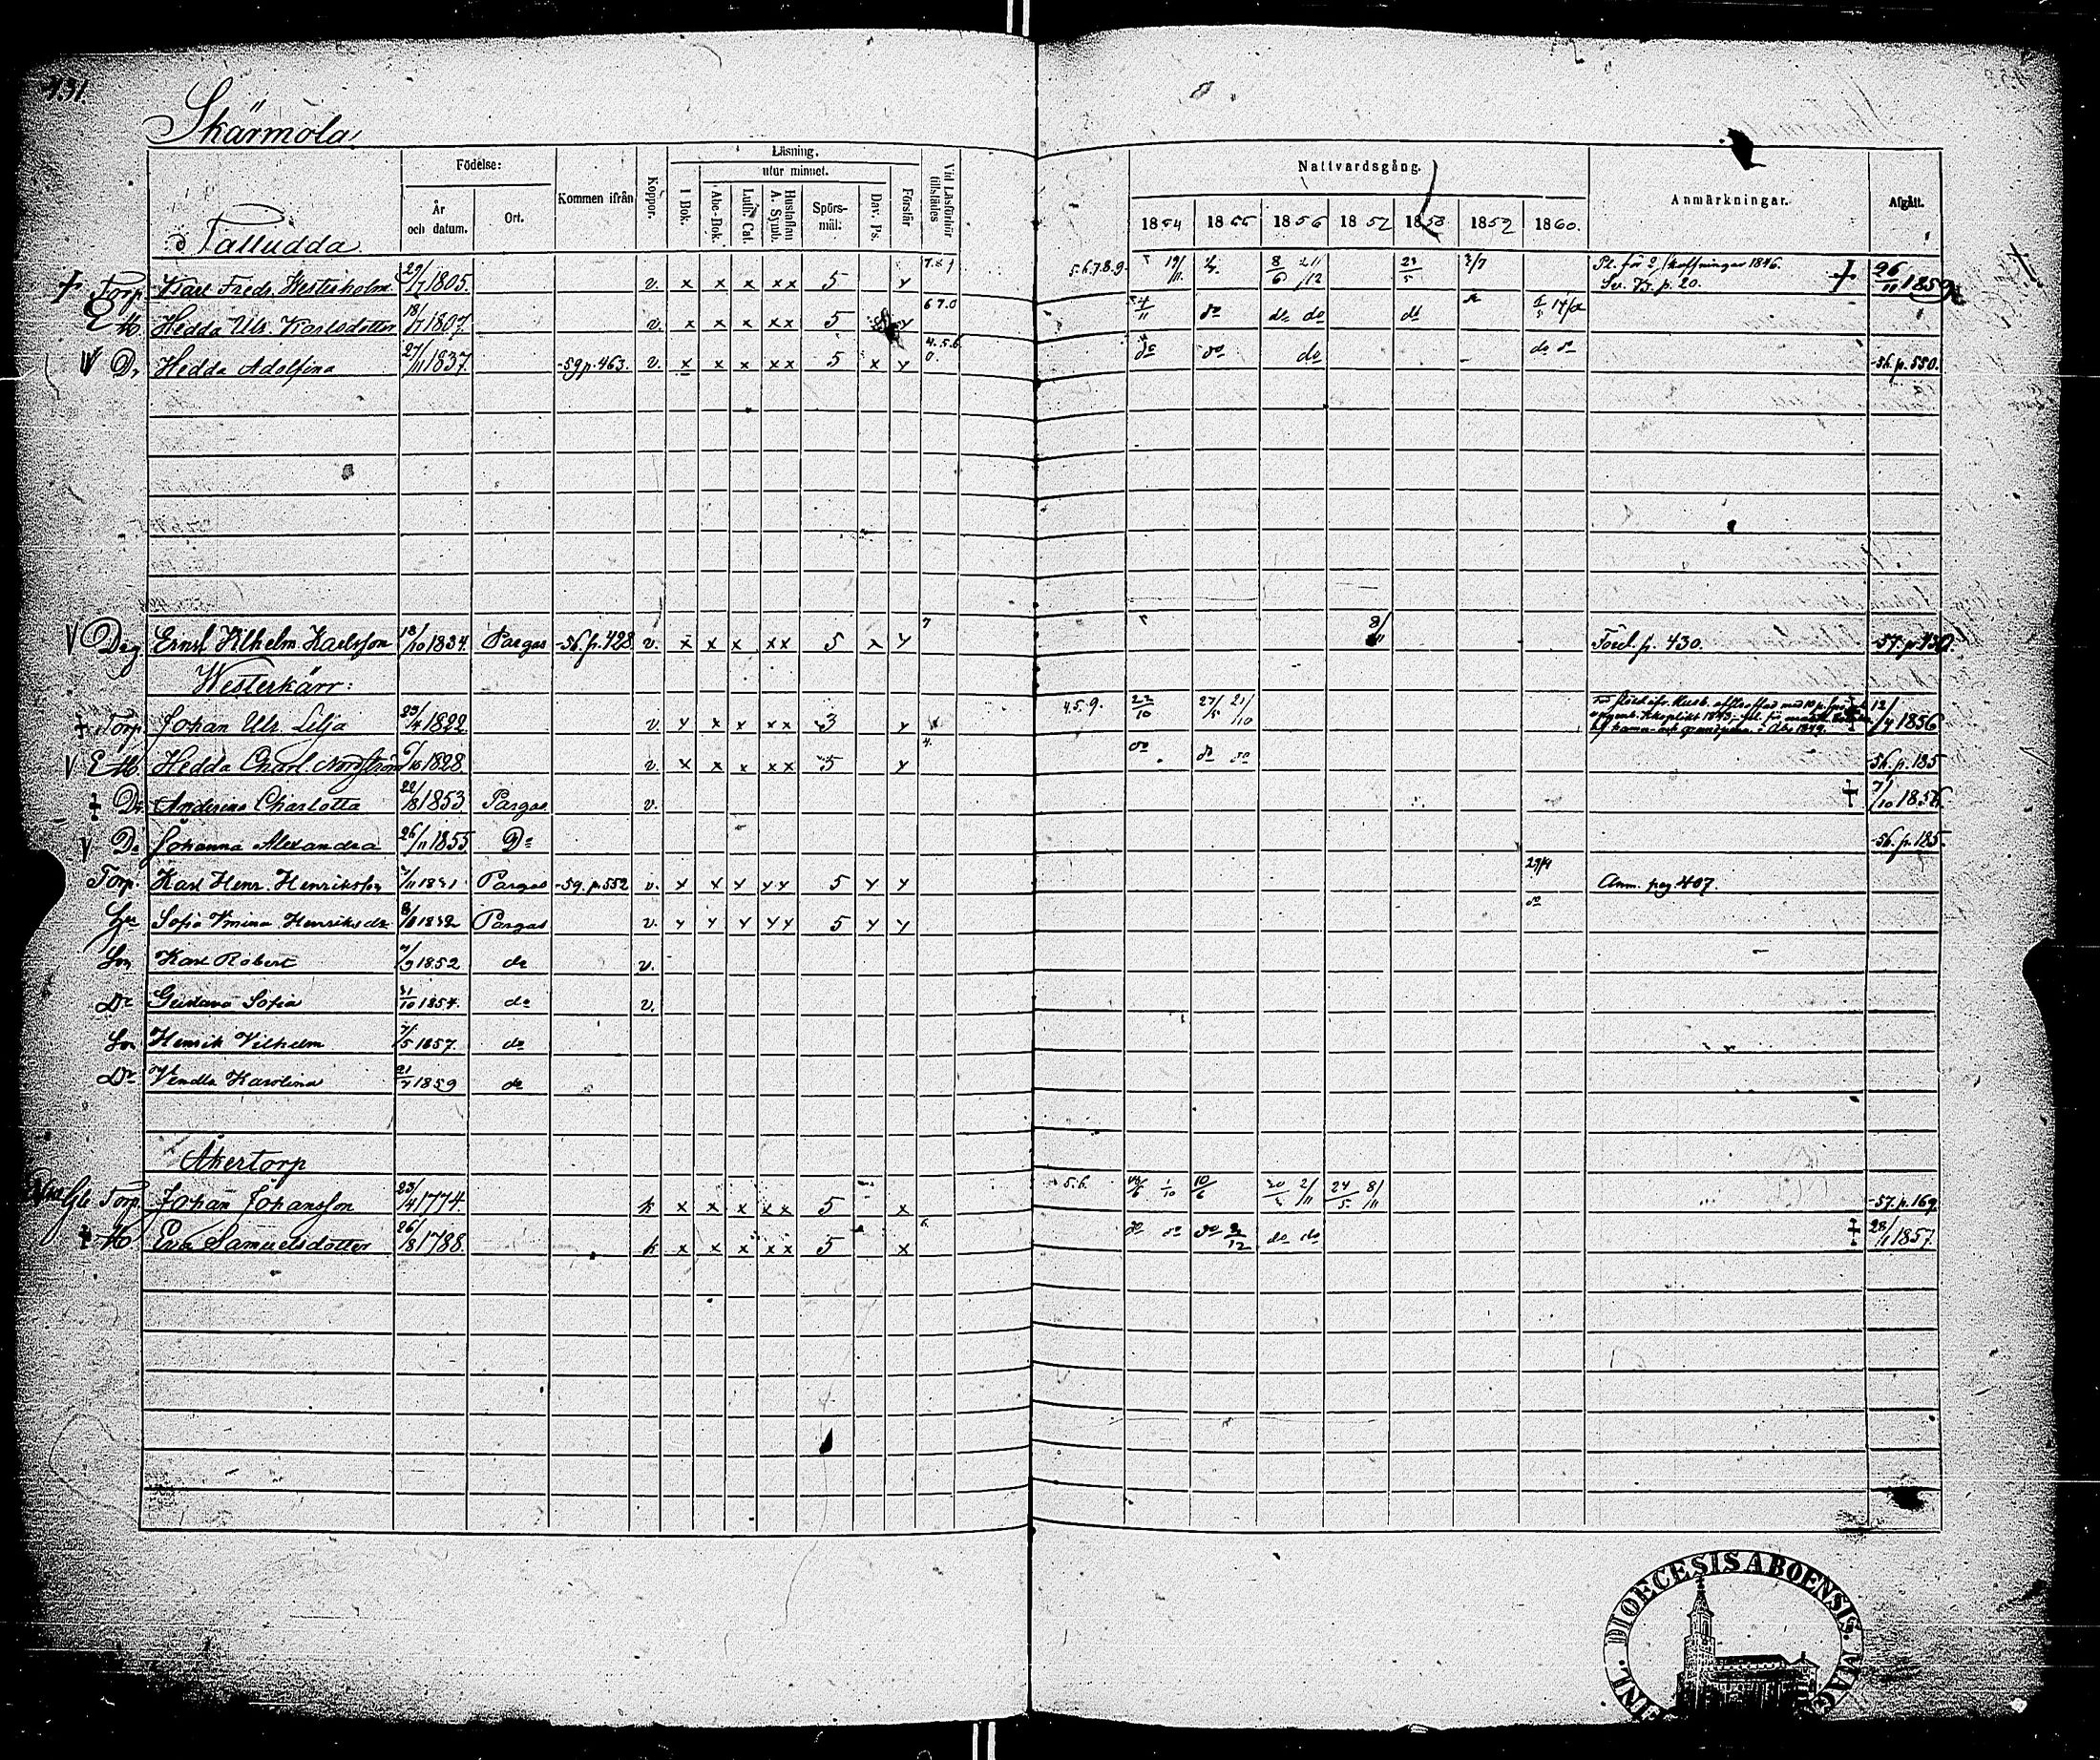 431.
Skärmola
Födelse:
Kommen ifrån
Koppor.
Läsning.
utur minnet.
I Bok.
Abc-Bok.
Luth. Cat.
Hustaflan A. Symb.
Spörsmål.
Dav. Ps.
Förstår
Vid Läsförhör tillstädes
Nattvardsgång.
Anmärkningar.
Afgått.
År och datum.
Ort.
1854 1855 1856 1857 1858 1859 1860.
Talludda
Torp. Karl Fredr. Westerholm 29/7 1805. v. x x x xx 5 y 5.6.7.8.9. 19/11 23/5 3/7 26/11 1859
E H. Hedda Ulr. Karlsdotter 18/7 1807. v. x x x xx 5 y 6 7.0 do do do do
Sv. p. 20.
V Dr Hedda Adolfina 27/11 1837. -59 p. 463. v. x x x xx 5 x y 4.5.6.0. do do do do do -56. p. 550.
V Drg Ernst Wilhelm Karlsson 18/10 1834. Pargas -56. p. 428 v. x x x xx 5 x y 7 8/11 Förd. p. 430. -57. p. 430.
Westerkärr:
Torp. Johan Ulr. Lilja 23/4 1822. v. y x x xx 3 y 4.5.9. 22/10 27/5 21/10 12/4 1856
V E H. Hedda Charl. Nordström 1828. v. x x x xx 5 y 4. do do do 56. p. 185
Dr. Anderina Charlotta 22/8 1853 Pargas v. 7/10 1856.
V Dr Johanna Alexandra 26/11 1855 Do -56. p. 185.
Torp. Karl Henr. Henriksson 7/11 1831. Pargas -59. p. 552 v. y y y yy 5 y y 29/4 Anm. pag 407.
Hu Sofia Vmina Henriksdr 1832 Pargas v. y y y yy 5 y y do
Son Karl Robert 7/9 1852 do v.
Dr Gustava Sofia 31/10 1854. do v.
Son Henrik Vilhelm 7/5 1857. do
Dr Vendla Karolina 21/7 1859 do
Åkertorp
Torp. Johan Johansson 23/4 1774. k x x x xx 5 x 5.6. 1/10 10/6 2/11 24/5 8/11 -57. p. 169
H Eva Samuelsdotter 26/8 1788. k x x x xx 5 x 6. do do do 2/12 do do 28/11 1857.
DIOECESIS ABOENSIS.